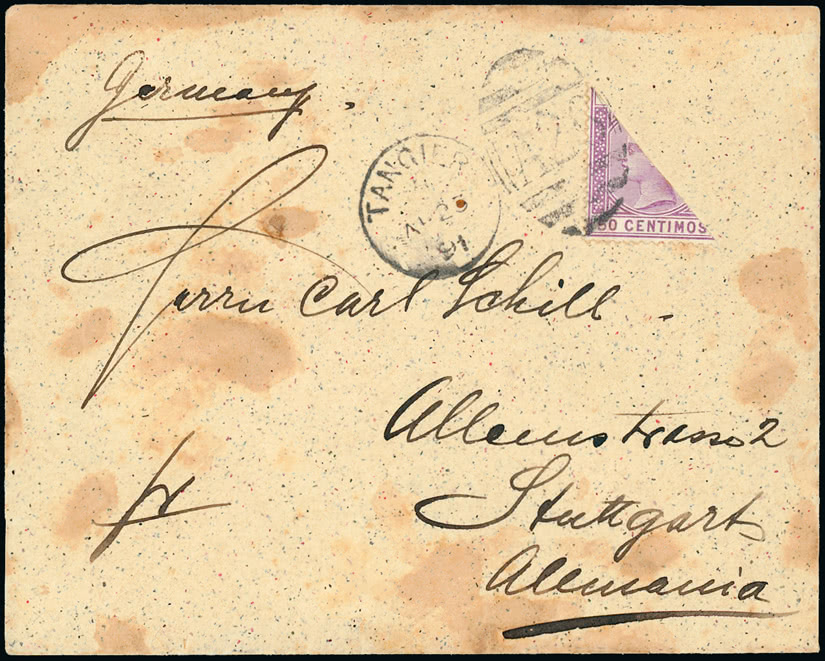 Germany.
A26
TANGIER
AP 25
91
50 CENTIMOS
Herrn Carl Schill.
Allemstrasse 2
Stuttgart
Alemania